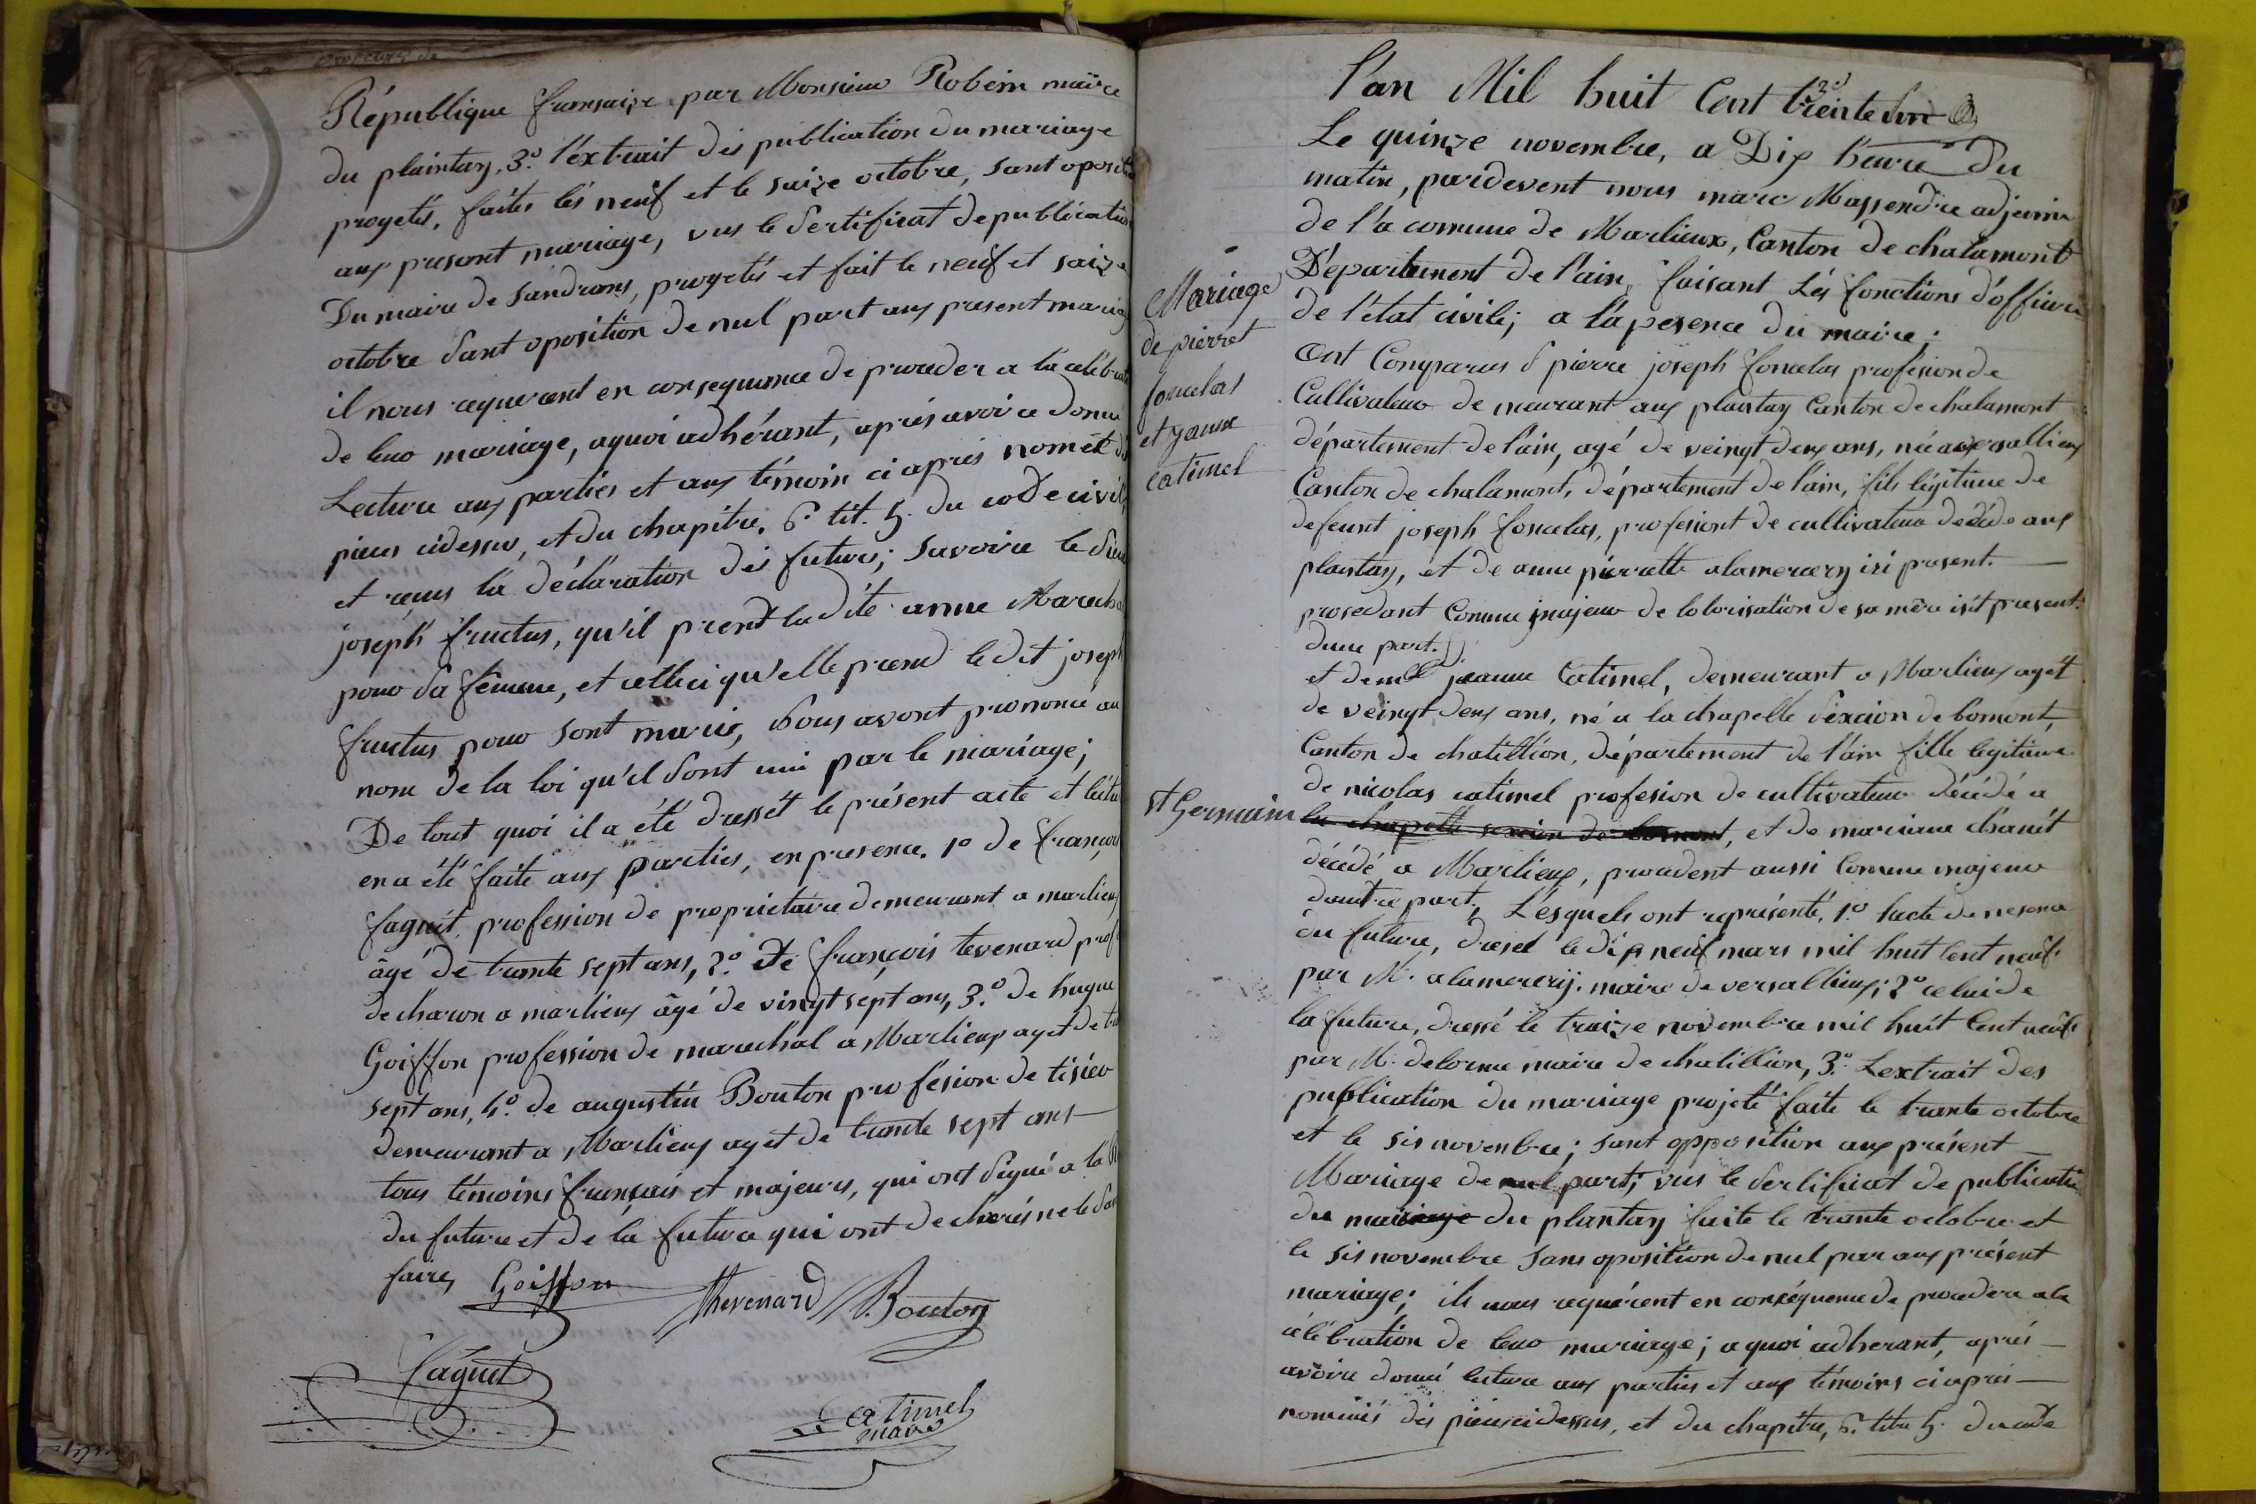 République fransaize par Monsieur Robein maire
du plaintay, 3.º l'éxtrait dés publication du mariage
progetés, faites lés neuf et le saize octobre, sant oposition
aux presant mariage, vus le Sertificat de publication
Du maire de Sandrans, progetés et fait le neuf et saize
octobre Sant oposition de nul part aux present mariage
il nous requerent en consequance de proceder a la célébration
de leur mariage, aquoi adhérant, aprés avoire donné
Lecture aux parties et aux témoin ci aprés nomét dés
pieces cidessus, et du chapitre, 6. tit. 5. du code civil,
et recus la déclaration dés futurs; Savoire le dit
joseph fructus, qu'il prent la dite anne Marechal
pour Sa fémme, et cellici qu'elle prend le dit joseph
fructus pour Sont marie, Nous avont prononcé au
nom de la loi qu'il Sont uni par le mariage;
De tout quoi il a été dressét le présent acte et lecture
en a été faite aux parties, en presence. 1º de françois
faguét, profession de propriétaire demeurant a marlieux
âgé de trante sept ans, 2.º De françois tevenard prof
de charon a marlieux âgé de vingt sept ans, 3.º de hugue
Goiffon profession de marechal a Marlieux aget de
sept ans, 4.º de augustin Bouton profesion de tisieu
demeurant a Marlieux aget de trante sept ans
tous témoins français et majeurs, qui ont Signé a la
du future et de la future qui ont declarés ne le Savoir
faire,
Goiffon Thevenard Bouton
faguet
Catimel
maire
l'an Mil huit Cent trente un
Le quinze novembre, a Dix heure Du
matin, pardevent nous marc Massendre adjoin
de l'a comune de Marlieux, Canton de chalamont
Département de l'ain, faisant Lés fonctions d'officier
de l'état civile; a la pesence du maire;
Ont Comparus pierre joseph foncelas profesion de
Cultivateur demeurant aux plantay Canton de chalamont
département de l'ain, agé de veingt deux ans, né a versallieux
Canton de chalamont, département de l'ain, fils légitime de
defeunt joseph foncelas, profesiont de cultivateur décéde aux
plantay, et de anne pierrette alamercery ici present.
prosedant Comme majeur de lotorisation de sa mére isit present.
dune part.
et de mlle jeanne Catimel, demeurant a Marlieux agét
de veingt deux ans, né a la chapelle Séxcion de bomont,
Canton de chatillion, département de l'ain fille legitime
de nicolas catimel profesion de cultivateur décédé a
la chapelle sexcion de bomont, et de mariane chanét
décédé a Marlieux, procedent aussi Comme majeur
dautre part; Lésquels ont représenté, 1.º lacte de nesence
du future, dresé le dix neuf mars mil huit cent neuf.
par Mr. alamercery. maire de versallieux; 2.º celui de
la future, dressé le traize novembre mil huit Cent neuf.
par Mr. delorme maire de chatillion, 3.º Lextrait des
publication du mariage projeté faite le trante octobre
et le sis novembre; sant opposition aux présent
Mariage de nul part; vus le Sertificat de publication
du mariage du plantay faite le trante octobre et
le sis novembre Sans oposition de nul par aux présent
mariage; ils nous requérent en conséquence de procedere a la
célébration de leur mariage; a quoi adherant, aprés
avoire donné lecture aux parties et aux témoins ci aprés
nommés dés pieces cidessus, et du chapitre, 6. titre 5. du code
Mariage
de pierret
foncelas
et janne
catimel
St Germain